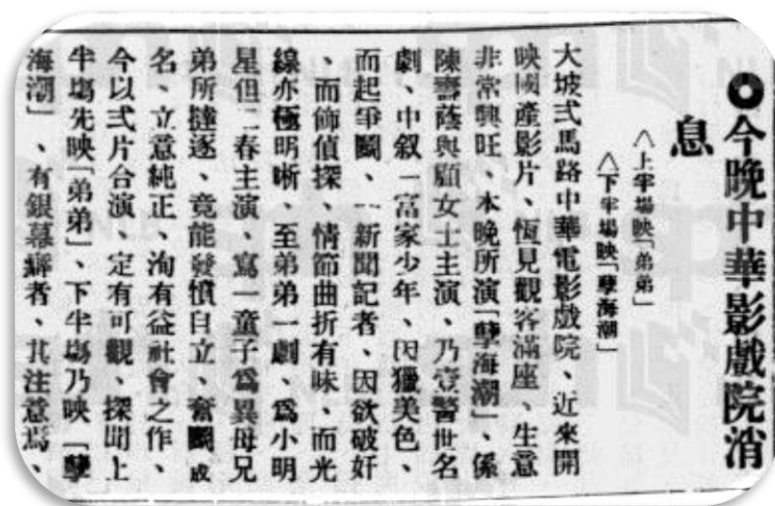 ●今晚中華影戲院消
息
〈上半場映「弟弟」
〈下半場映「孽海潮」
大坡弍馬路中華電影戲院、近來開
映國產影片、恆見觀客滿座、生意
非常興旺、本晚所演「孽海潮」、係
陳壽蔭與顧女士主演、乃壹警世名
劇、中叙一富家少年、因獵美色、
而起爭鬭、一新聞記者、因欲破奸
、而飾偵探、情節曲折有味、而光
線亦極明晰、至弟弟一劇、爲小明
星但二春主演、寫一童子爲異母兄
弟所撻逐、竟能發憤自立、奮鬭成
名、立意純正、洵有益社會之作、
今以弍片合演、定有可觀、探聞上
半塲先映「弟弟」、下半塲乃映「孽
海潮」、有銀幕癖者、其注意焉、